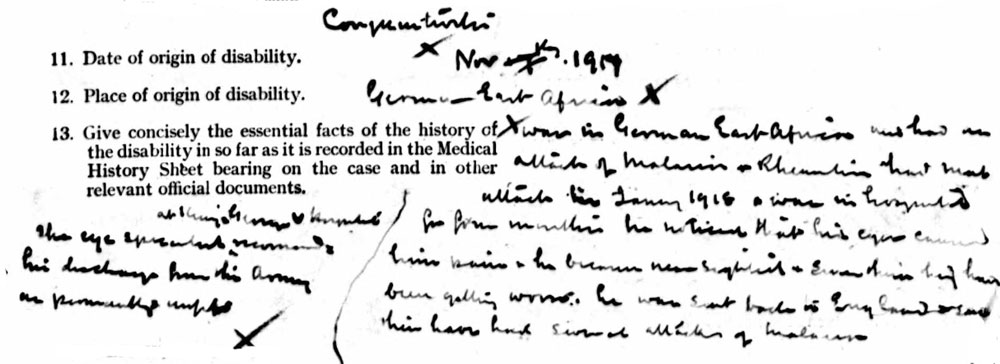 Conjunctivitis
11. Date of origin of disability. X Nov. 1917
12. Place of origin of disability. German East Africa X
13. Give concisely the essential facts of the history of
the disability in so far as it is recorded in the Medical
History Sheet bearing on the case and in other
relevant official documents.
X was in German East Africa and had an
attack of Malaria & Rheumatism had next
attack in January 1918 & was in hospital
for four months he noticed that his eyes caused
him pain & he became near sighted & since then they have
been getting worse. he was sent back to England & since
then have had several attacks of Malaria
at King George V Hospital
The eye specialist recommends
his discharge from the Army
as permanently unfit
X